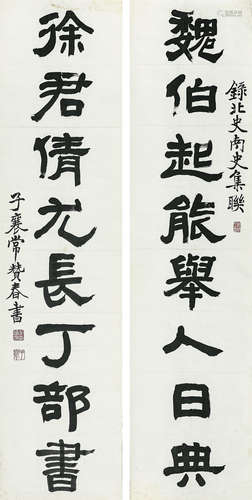 魏伯起能舉人日典
錄北史南史集聯
徐君倩尤長丁部書
子襄常贊春書